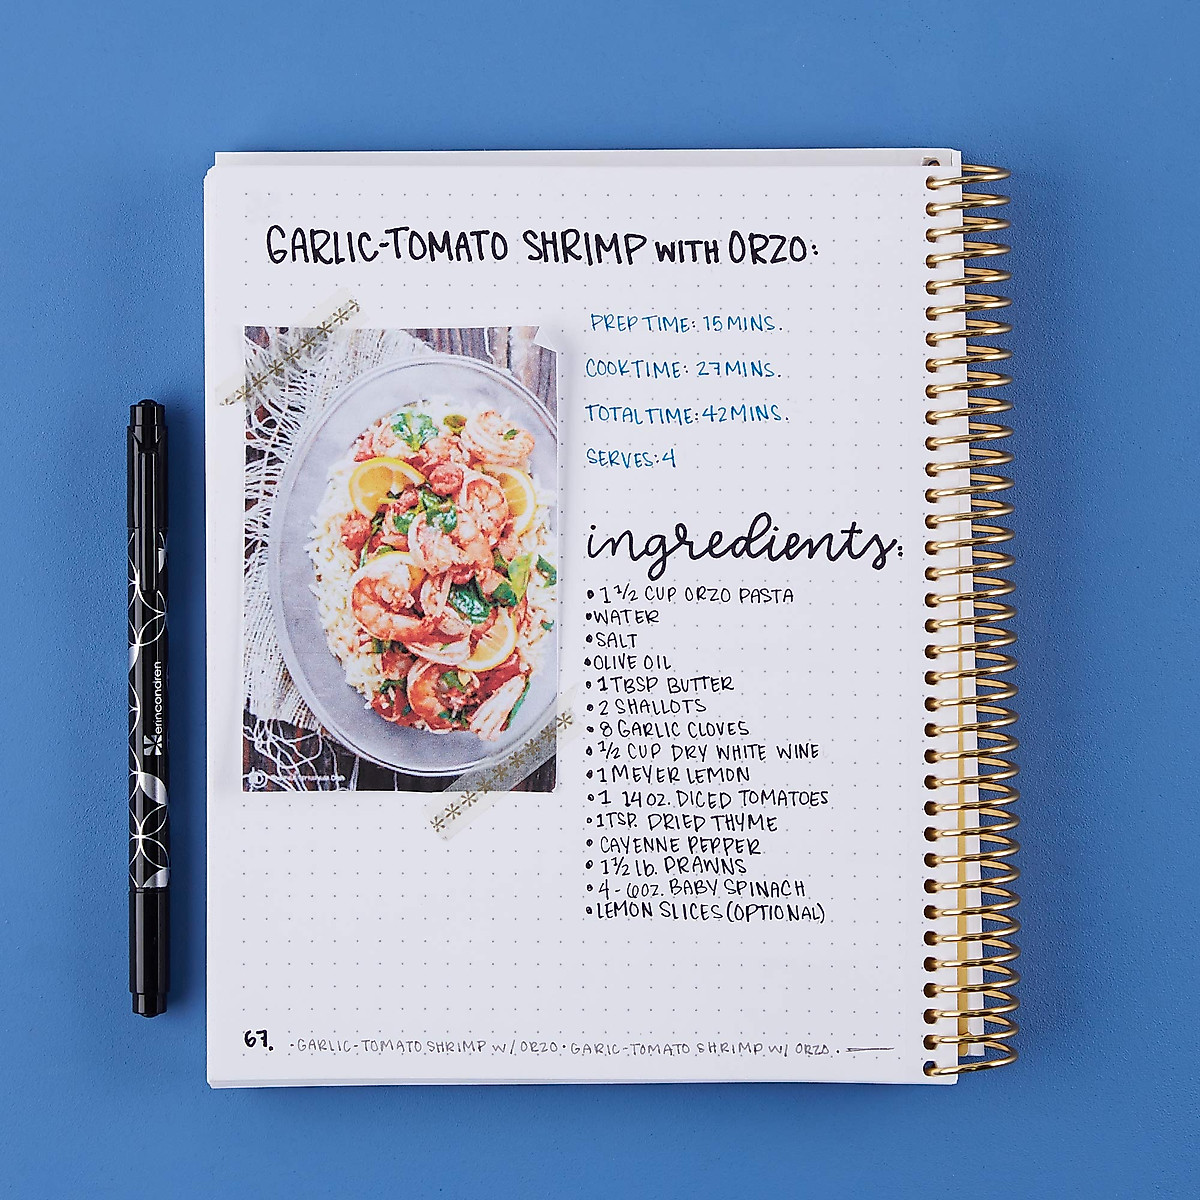 GARLIC-TOMATO SHRIMP WITH ORZO:
PREP TIME: 15 MINS.
COOK TIME: 27 MINS.
TOTAL TIME: 42 MINS.
SERVES: 4
ingredients:
• 1 1/2 CUP ORZO PASTA
• WATER
• SALT
• OLIVE OIL
• 1 TBSP BUTTER
• 2 SHALLOTS
• 8 GARLIC CLOVES
• 1/2 CUP DRY WHITE WINE
• 1 MEYER LEMON
• 1 14 OZ. DICED TOMATOES
• 1 TSP. DRIED THYME
• CAYENNE PEPPER
• 1 1/2 lb. PRAWNS
• 4-6 OZ. BABY SPINACH
• LEMON SLICES (OPTIONAL)
67. • GARLIC-TOMATO SHRIMP W/ ORZO • GARIC-TOMATO SHRIMP W/ ORZO •
erincondren